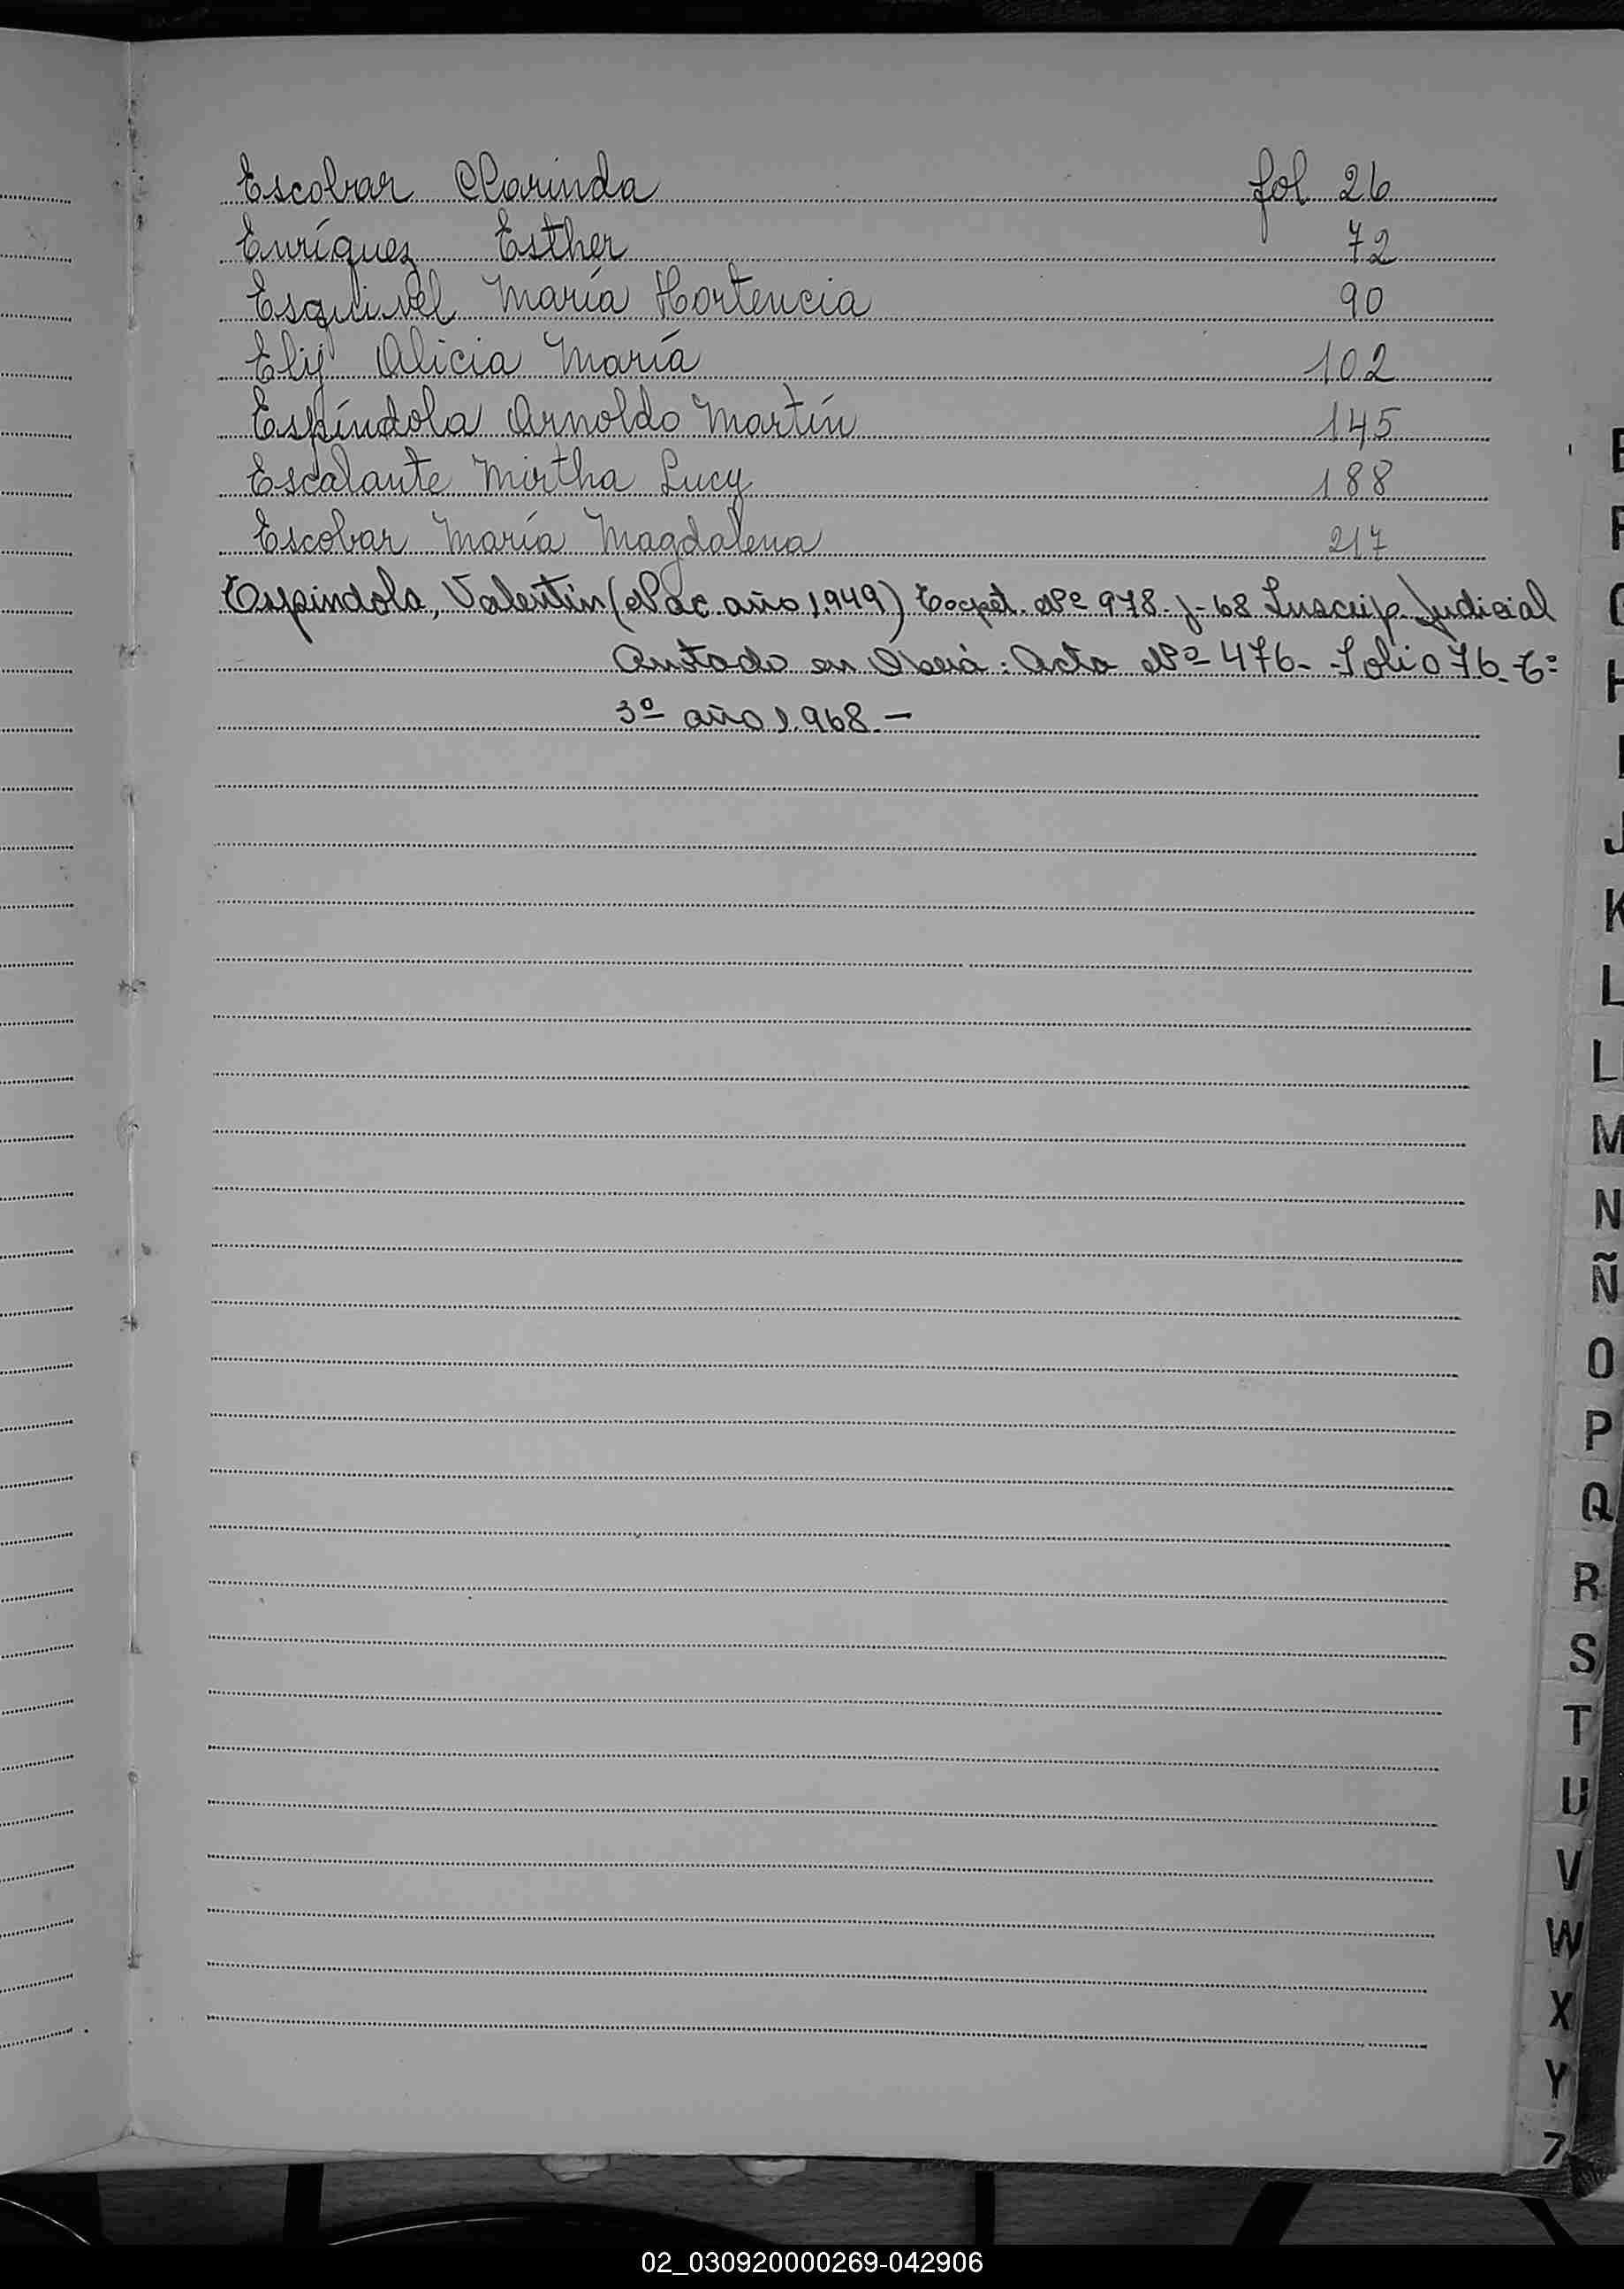 Escobar Clarinda fol 26
Enríquez Esther 72
Esquivel María Hortencia 90
Elij Alicia María 102
Espíndola Arnoldo Martín 145
Escalante Mirtha Lucy 188
Escobar María Magdalena 217
Espindola, Valentín (Nac año 1.949) Expet. Nº 978-J-68 Inscrip. Judicial
Anotado en Oberá: Acta Nº 476- Folio 76 Tº
3º año 1.968.-
E
F
G
H
I
J
K
L
Ll
M
N
Ñ
O
P
Q
R
S
T
U
V
W
X
Y
Z
02_030920000269-042906